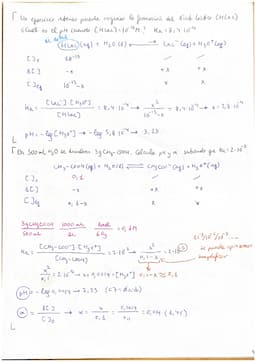 Un ejercicio atlético puede originar la formación del ácido láctico (HLac)
¿Cuál es el pH cuando [HLac]=10⁻³ M? Ka = 8,4·10⁻⁴
HLac (aq) + H₂O (l) → Lac⁻ (aq) + H₃O⁺ (aq)
[ ]₀ 10⁻³ — —
Δ[ ] -x +x +x
[ ]eq 10⁻³-x x x
Ka = [Lac⁻][H₃O⁺] / [HLac] = 8,4·10⁻⁴ → x² / 10⁻³-x = 8,4·10⁻⁴ → x =
pH = -log [H₃O⁺] → -log 5,8·10⁻⁴ → 3,23
En 500 mL H₂O se tienen 3g CH₃-COOH. Calcula pH y α sabiendo que Ka = 2·10⁻⁵
CH₃-COOH (aq) + H₂O (l) ⇌ CH₃COO⁻ (aq) + H₃O⁺ (aq)
[ ]₀ 0,1 — —
Δ[ ] -x +x +x
[ ]eq 0,1-x x x
3g CH₃COOH / 500 mL · 1000 mL / 1L · 1mol / 60g = 0,1M
Ka = [CH₃-COO⁻][H₃O⁺] / [CH₃-COOH] = 2·10⁻⁵ → x² / 0,1-x = 2·10⁻⁵
se puede aproximar
simplificar
x² / 0,1 = 2·10⁻⁵ → x = 0,0014 = [H₃O⁺] 0,1-x ≈ 0,1
pH = -log 0,0014 → 2,85
α = Δ[ ] / [ ]₀ → α = x / 0,1 = 0,0014 / 0,1 = 0,014 (1,4%)